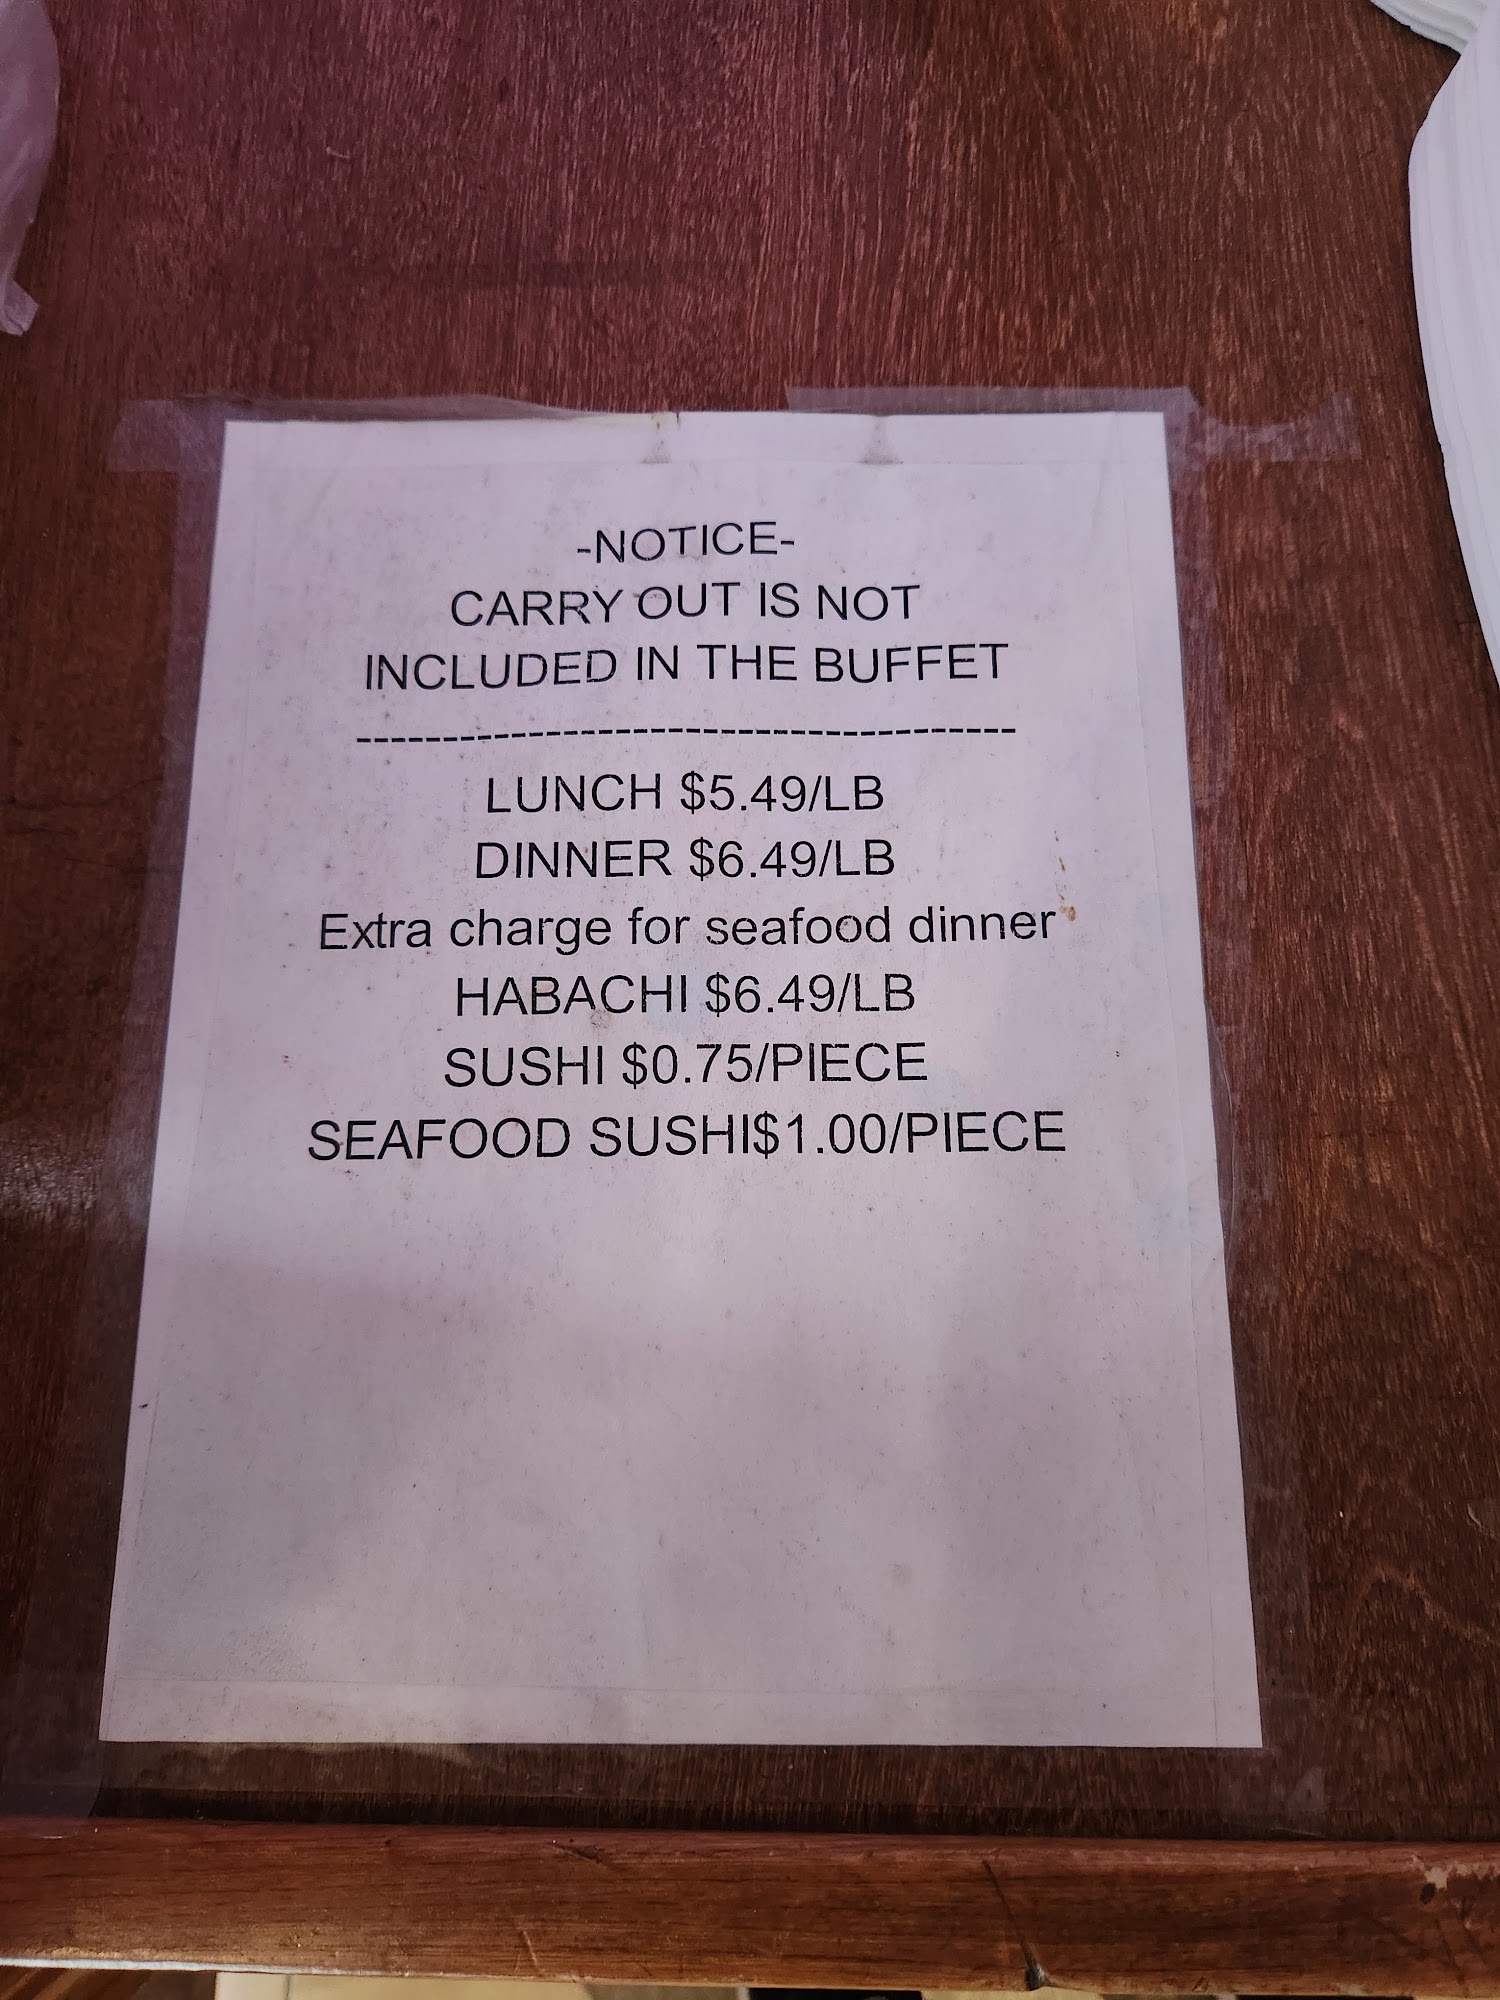 -NOTICE-
CARRY OUT IS NOT
INCLUDED IN THE BUFFET
--------------------------------------
LUNCH $5.49/LB
DINNER $6.49/LB
Extra charge for seafood dinner
HABACHI $6.49/LB
SUSHI $0.75/PIECE
SEAFOOD SUSHI$1.00/PIECE